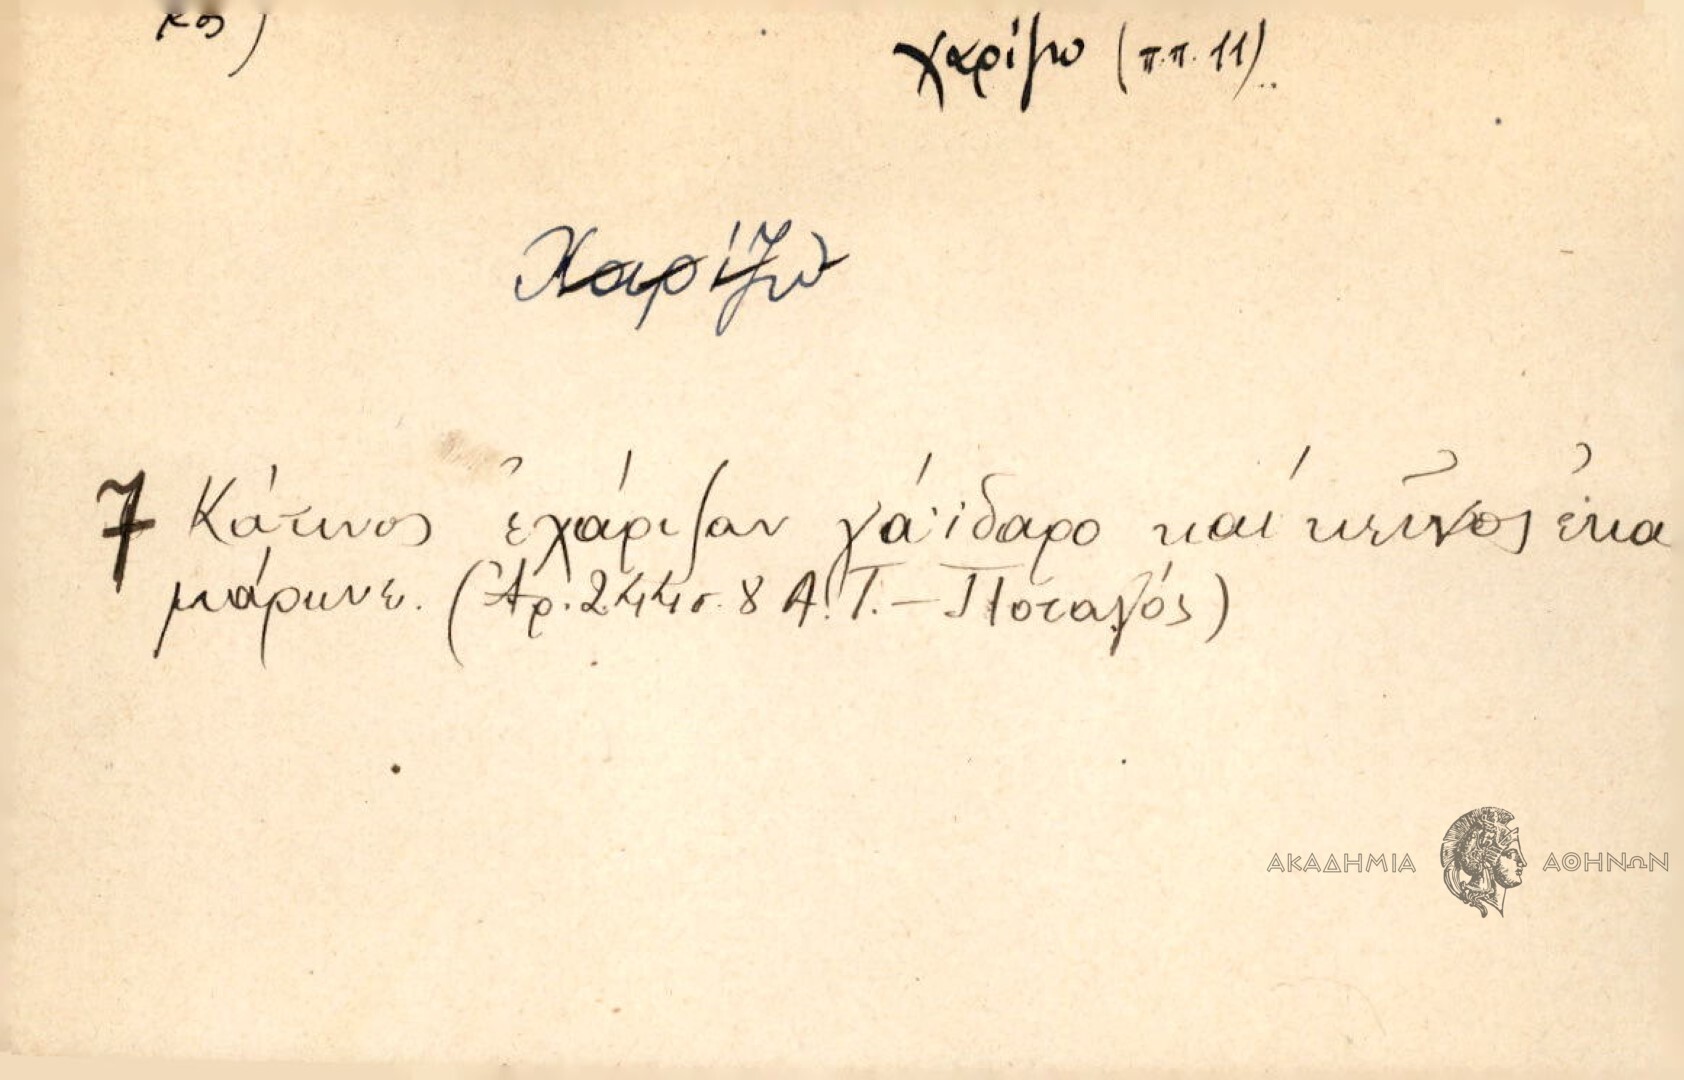 κος)
χαρίζω (π.π. 11)..
Χαρίζω
7 Κάτινος ἐχάριζαν γάϊδαρο καί κεῖνος ἐκα
μάρωνε. (Ἀρ. 244 σ. 8 Α. Τ. – Ποταμός)
ΑΚΑΔΗΜΙΑ ΑΘΗΝΩΝ